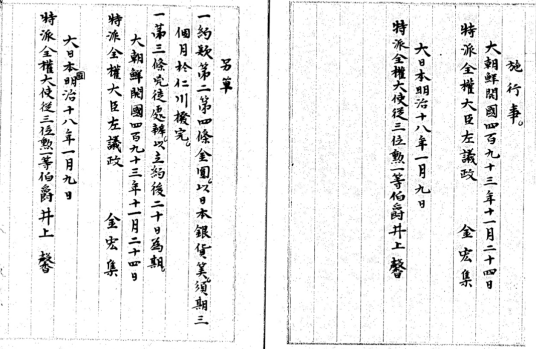 施行事。
大朝鮮開國四百九十三年十一月二十四日
特派全權大臣左議政　金宏集
大日本明治十八年一月九日
特派全權大使從三位勲一等伯爵井上馨
另單
一約款第二第四條金圓、以日本銀貨算、須期三
個月於仁川撥完。
一第三條兇徒處辦、以立約後二十日為期。
大朝鮮開國四百九十三年十一月二十四日
特派全權大臣左議政　金宏集
大日本國明治十八年一月九日
特派全權大使從三位勲一等伯爵井上馨